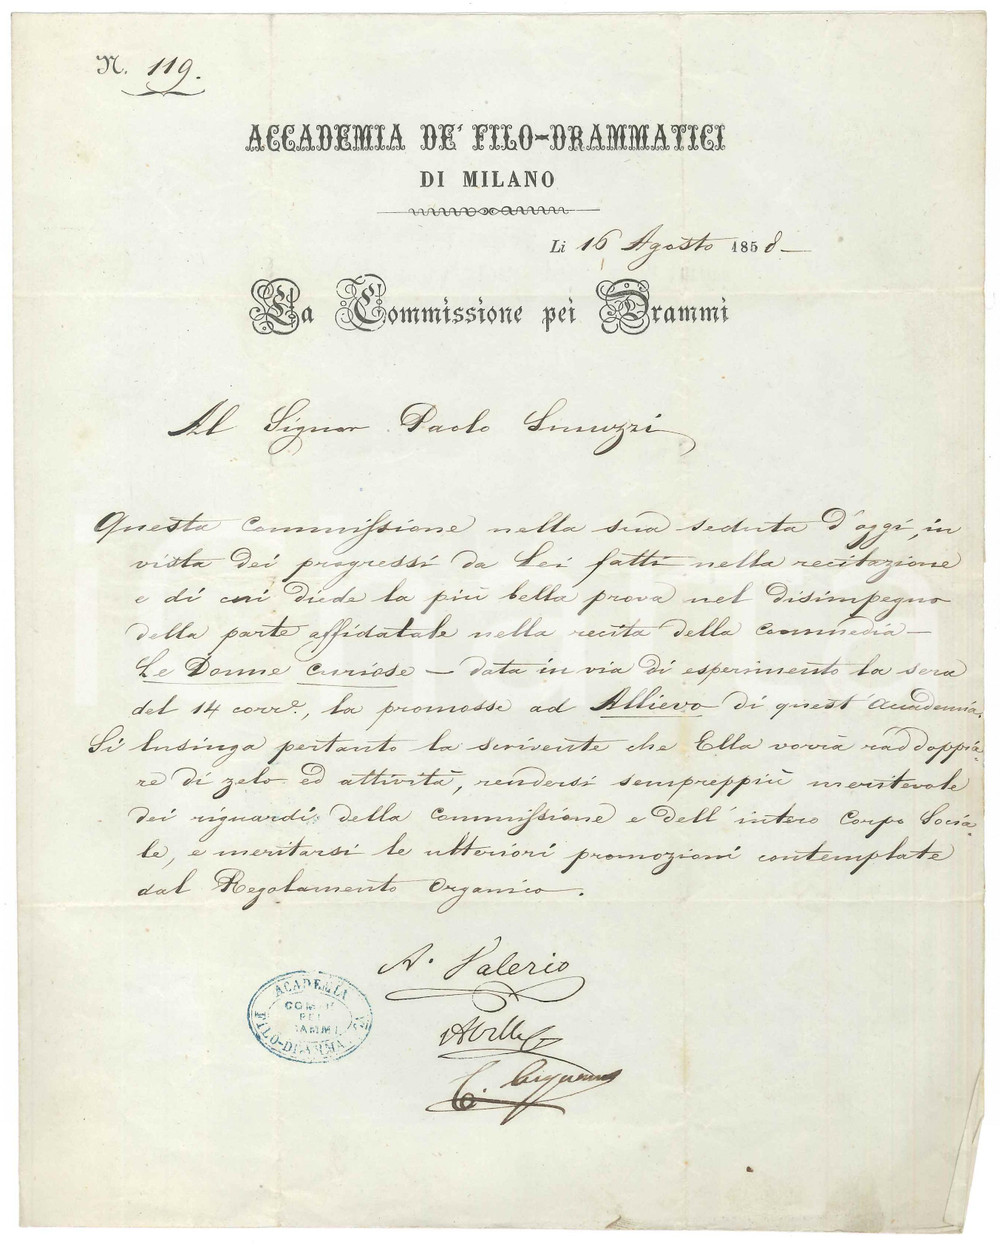 N. 119.
ACCADEMIA DE' FILO-DRAMMATICI
DI MILANO
Li 16 Agosto 1858
La Commissione pei Drammi
Al Signor Paolo
Questa Commissione nella sua seduta d'oggi, in
vista dei progressi da Lei fatti nella recitazione
e di cui diede la più bella prova nel disimpegno
della parte affidatale nella recita della Commedia —
Le Donne curiose — data in via di esperimento la sera
del 14 corr.e, la promosse ad Allievo di quest'Accademia.
Si lusinga pertanto la scrivente che Ella vorrà raddoppia-
re di zelo ed attività, rendersi sempreppiù meritevole
dei riguardi della Commissione e dell'intero Corpo Socia-
le, e meritarsi le ulteriori promozioni contemplate
dal Regolamento Organico.
A. Valerio
ACCADEMIA
FILO-DRAMMA